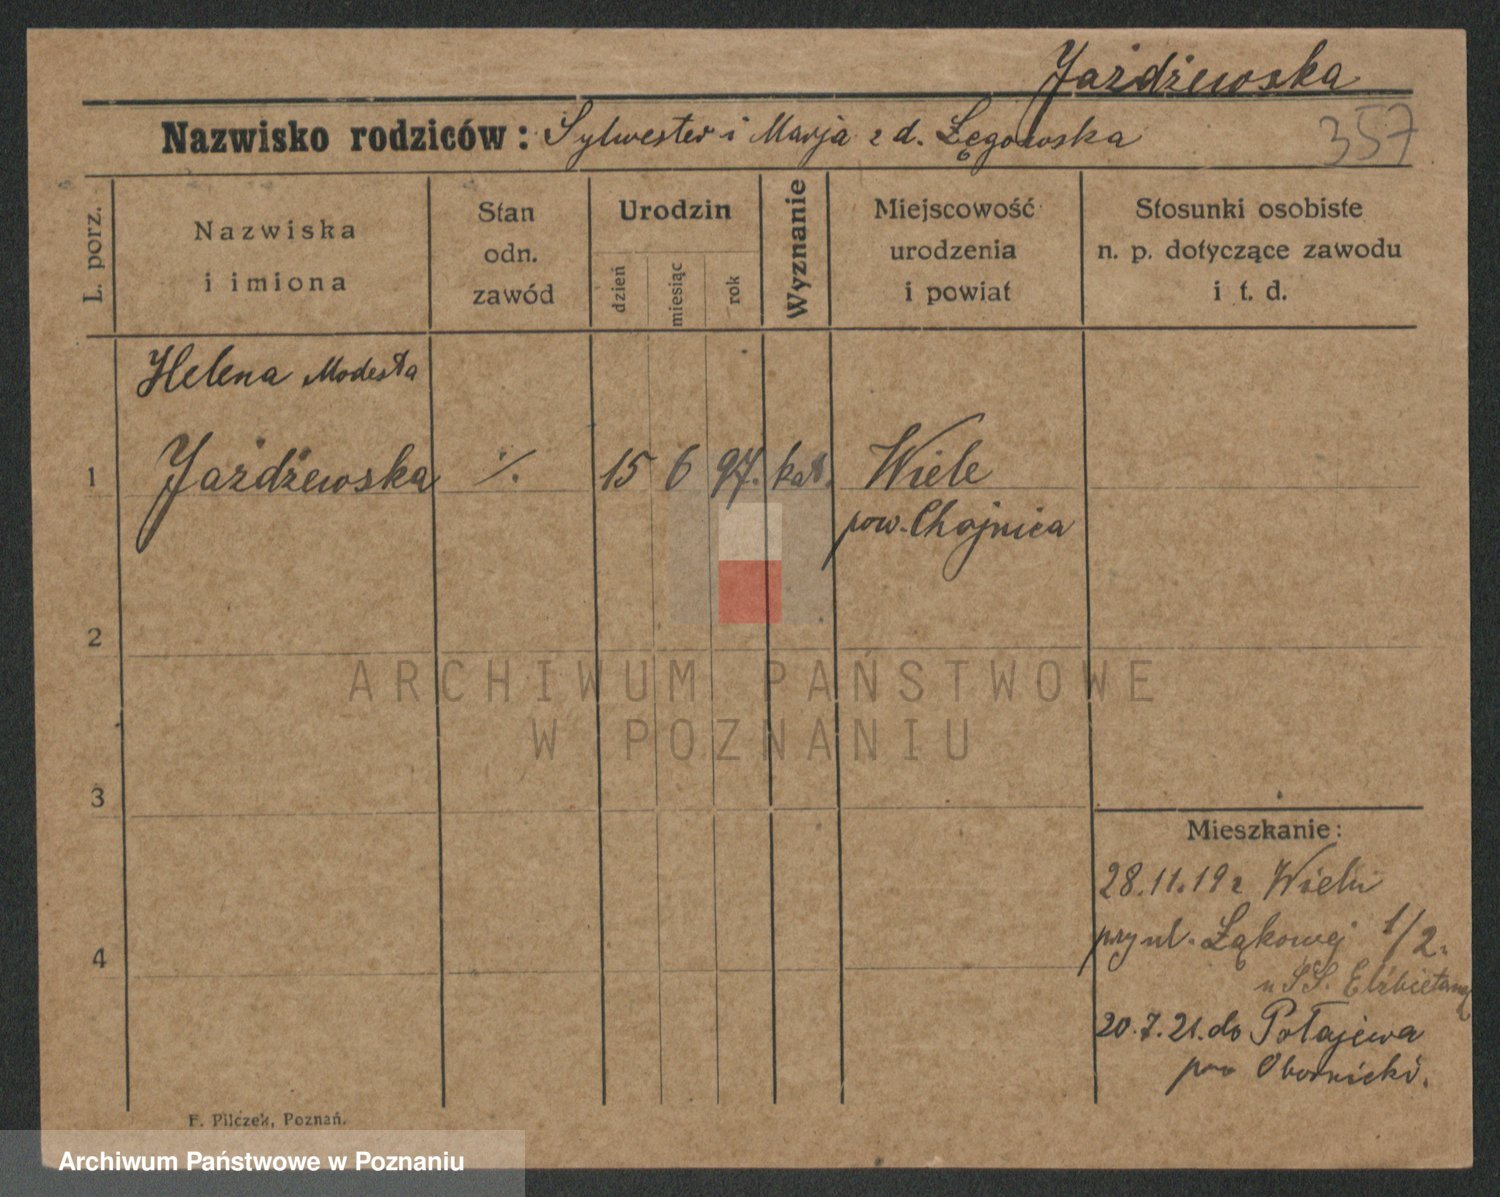 Jażdżewska
Nazwisko rodziców: Sylwester i Marja z d. Łęgowska
357
L. porz.
Nazwiska
i imiona
Stan
odn.
zawód
Urodzin
dzień
miesiąc
rok
Wyznanie
Miejscowość
urodzenia
i powiat
Stosunki osobiste
n. p. dotyczące zawodu
i t. d.
Helena Modesta
1 Jażdżewska ./. 15 6 97. kat. Wiele
pow. Chojnica
2
ARCHIWUM PAŃSTWOWE
W POZNANIU
3
Mieszkanie:
28.11.19 z Wielu
przy ul. Łąkowej 1/2.
4
u SS. Elżbietanek
20.7.21. do Połajewa
pow Obornicki.
F. Pilczek, Poznań.
Archiwum Państwowe w Poznaniu